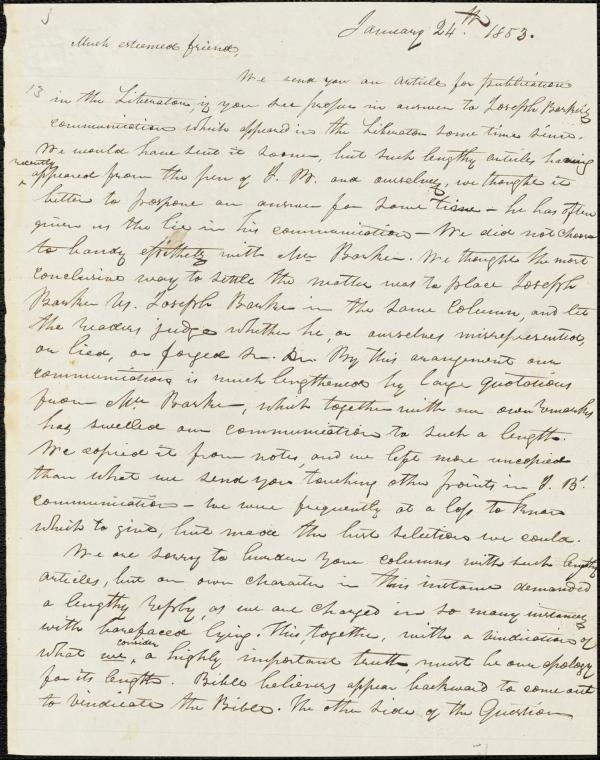 January 24th. 1853.
Much esteemed friend,
We send you an article for publication
13
in the Liberator, if you see proper in answer to Joseph Barker's
communication which appeared in the Liberator some time since.
We would have sent it sooner, but such lengthy articles having
recently
appeared from the pen of and ourselves, we thought it
better to postpone an answer for some time – he has often
given us the lie in his communication – We did not choose
to bandy epithets with Mr Barker. We thought the most
conclusive way to settle the matter was to place Joseph
Barker vs. Joseph Barker in the same column, and let
the readers judge whether he, or ourselves misrepresented,
or lied, or forged &c. &c. By this arrangement our
communication is much lengthened by large quotations
from Mr Barker, which together with our own remarks
has swelled our communication to such a length.
We copied it from notes, and we left more uncopied
than what we send you touching other points in J. B's.
communication – we were frequently at a loss to know
which to give, but made the best selection we could.
We are sorry to burden your columns with such lengthy
articles, but our own character in this instance demanded
a lengthy reply, as we are charged in so many instances
with barefaced lying. This, together, with a vindication of
consider
what we, a highly important truth, must be our apology
for its length. Bible believers appear backward to come out
to vindicate the Bible. The other side of the Question